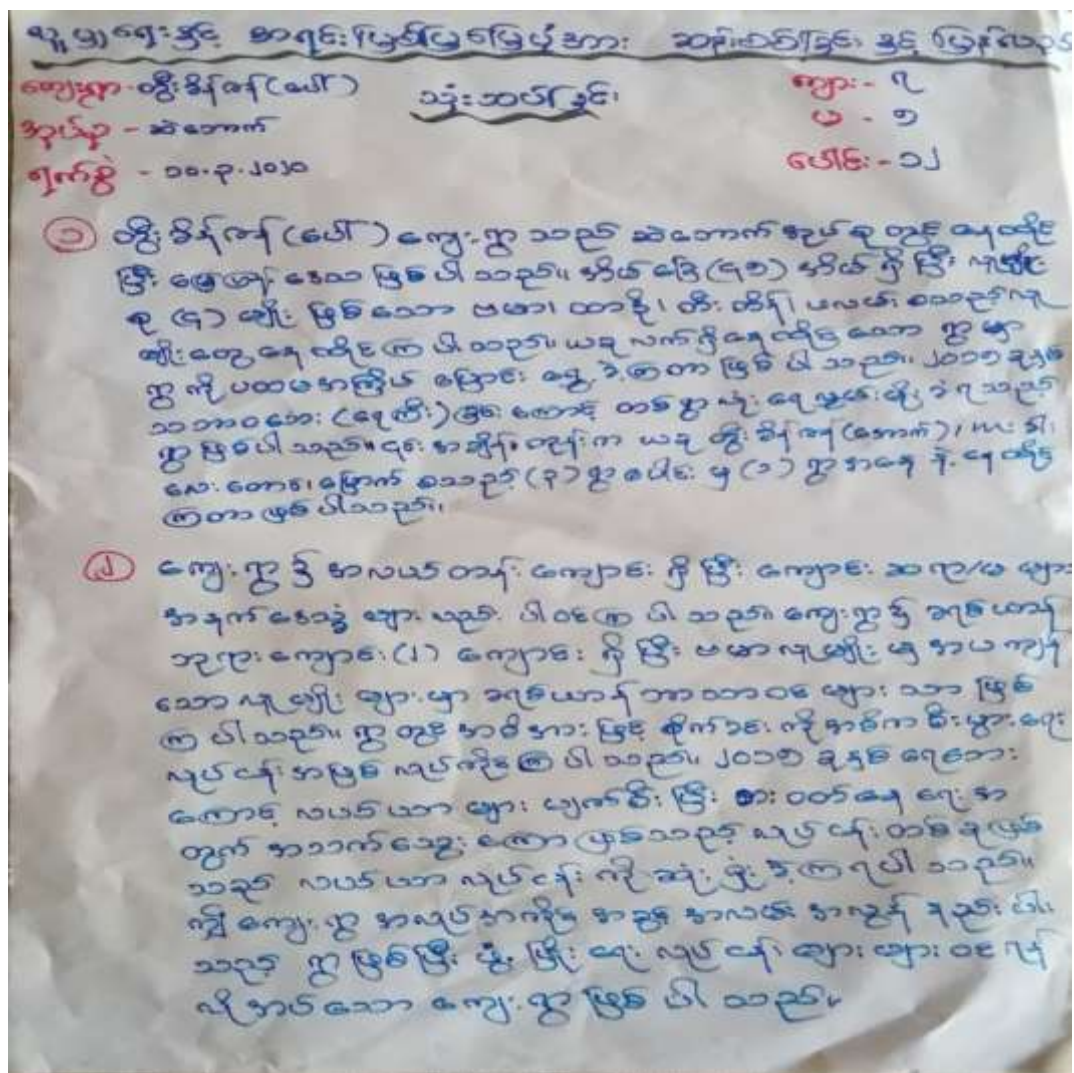 လူမှုရေးနှင့် အရင်းမြစ်ပြမြေပုံအား ဆန်းစစ်ခြင်း နှင့် ပြန်လည်
ကျေးရွာ - တွီးခိန်ဇန် (ပေါ်) သုံးသပ်ခြင်း ကျား - ၇
အုပ်စု - ဆဲအောက် မ - ၅
ရက်စွဲ - ၁၀.၃.၂၀၂၀ ပေါင်း - ၁၂
၁ တွီးခိန်ဇန် (ပေါ်) ကျေးရွာ သည် ဆဲအောက် အုပ်စု တွင် နေထိုင်
ပြီး မြေပြန့် ဒေသ ဖြစ်ပါသည်။ အိမ်ခြေ (၄၅) အိမ် ရှိပြီး လူမျိုး
စု (၄) မျိုး ဖြစ်သော ဗမာ၊ ထာဒို၊ တီးတိန်၊ ဖလမ်း စသည့် လူ
မျိုးတွေ နေထိုင်ကြပါသည်။ ယခု လက်ရှိ နေထိုင်သော ရွာမှာ
ရွာကို ပထမအကြိမ် ပြောင်းရွှေ့ခဲ့ကြတာ ဖြစ်ပါသည်။ ၂၀၁၅ ခုနှစ်
သဘာဝဘေး (ရေကြီး) ခြင်းကြောင့် တစ်ရွာလုံး ရေလွှမ်းမိုးခံရသည့်
ရွာ ဖြစ်ပါသည်။ ၎င်းအချိန်တုန်းက ယခု တွီးခိန်ဇန် (အောက်)၊
လေးတောင်မြောက် စသည့် (၃) ရွာ ပေါင်းမှ (၁) ရွာ အနေနဲ့ နေထိုင်
ကြတာ ဖြစ်ပါသည်။
၂ ကျေးရွာ၌ အလယ်တန်း ကျောင်း ရှိပြီး ကျောင်းဆရာ/မ များ
အနက် ဒေသခံ များလည်း ပါဝင်ကြပါသည်။ ကျေးရွာ၌ ခရစ်ယာန်
ဘုရားကျောင်း (၂) ကျောင်း ရှိပြီး ဗမာလူမျိုးမှ အပ ကျန်
သော လူမျိုးများမှာ ခရစ်ယာန် ဘာသာဝင်များ သာ ဖြစ်
ကြပါသည်။ ရွာတွင် အဓိအားဖြင့် စိုက်ခင်းကို အဓိက စီးပွားရေး
လုပ်ငန်းအဖြစ် လုပ်ကိုင်ကြပါသည်။ ၂၀၁၅ ခုနှစ် ရေဘေး
ကြောင့် လယ်ယာများ ပျက်စီးပြီး စားဝတ်နေရေးအ
တွက် အသက်သွေးကြော ဖြစ်သည့် လုပ်ငန်းတစ်ခု ဖြစ်
သည့် လယ်ယာလုပ်ငန်းကို ဆုံးရှုံးခဲ့ကြရပါသည်။
ဤကျေးရွာ အလုပ်အကိုင် အခွင့်အလမ်း အလွန် နည်းပါး
သည့် ရွာဖြစ်ပြီး ဖွံ့ဖြိုးရေး လုပ်ငန်းများများ ဝင်ရန်
လိုအပ်သော ကျေးရွာ ဖြစ်ပါသည်။